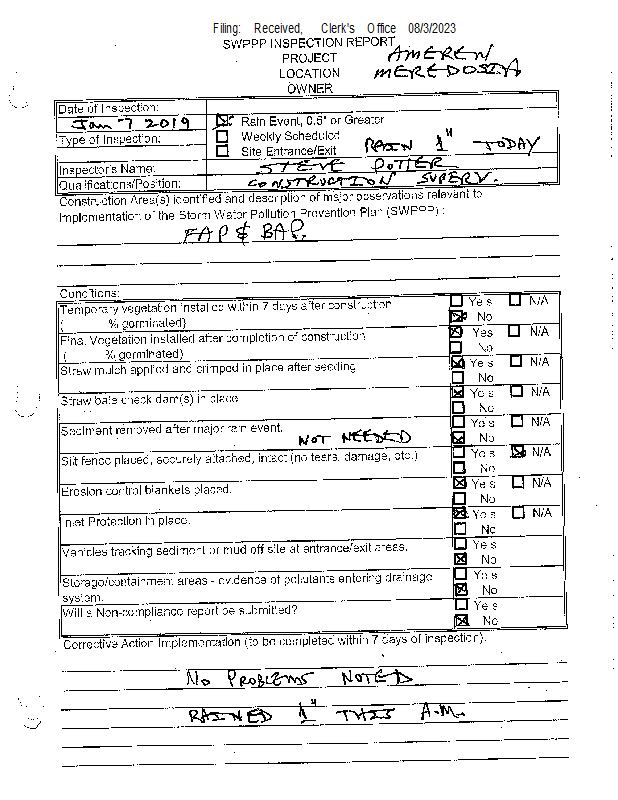 Filing: Received, Clerk's Office 08/3/2023
SWPPP INSPECTION REPORT
PROJECT AMEREN
LOCATION MEREDOSIA
OWNER
Date of Inspection:
Jan 7 2019
☒ Rain Event, 0.5" or Greater
Type of Inspection:
☐ Weekly Scheduled
☐ Site Entrance/Exit RAIN 1" TODAY
Inspector's Name: STEVE
Qualifications/Position: CONSTRUCTION SUPERV.
Construction Area(s) identified and description of major observations relevant to
Implementation of the Storm Water Pollution Prevention Plan (SWPPP) :
FAP & BAP.
Conditions:
Temporary vegetation installed within 7 days after construction ☐ Yes ☐ N/A
( % germinated) ☒ No
Final Vegetation installed after completion of construction ☒ Yes ☐ N/A
( % germinated) ☐ No
Straw mulch applied and crimped in place after seeding ☒ Yes ☐ N/A
☐ No
Straw bale check dam(s) in place ☒ Yes ☐ N/A
☐ No
Sediment removed after major rain event. ☐ Yes ☐ N/A
NOT NEEDED ☒ No
Silt fence placed, securely attached, intact (no tears, damage, etc.) ☐ Yes ☒ N/A
☐ No
Erosion control blankets placed. ☒ Yes ☐ N/A
☐ No
Inlet Protection in place. ☒ Yes ☐ N/A
☐ No
Vehicles tracking sediment or mud off site at entrance/exit areas. ☐ Yes
☒ No
Storage/containment areas - evidence of pollutants entering drainage ☐ Yes
system. ☒ No
Will a Non-compliance report be submitted? ☐ Yes
☒ No
Corrective Action Implementation (to be completed within 7 days of inspection).
NO PROBLEMS NOTED
RAINED 1" THIS A.M.